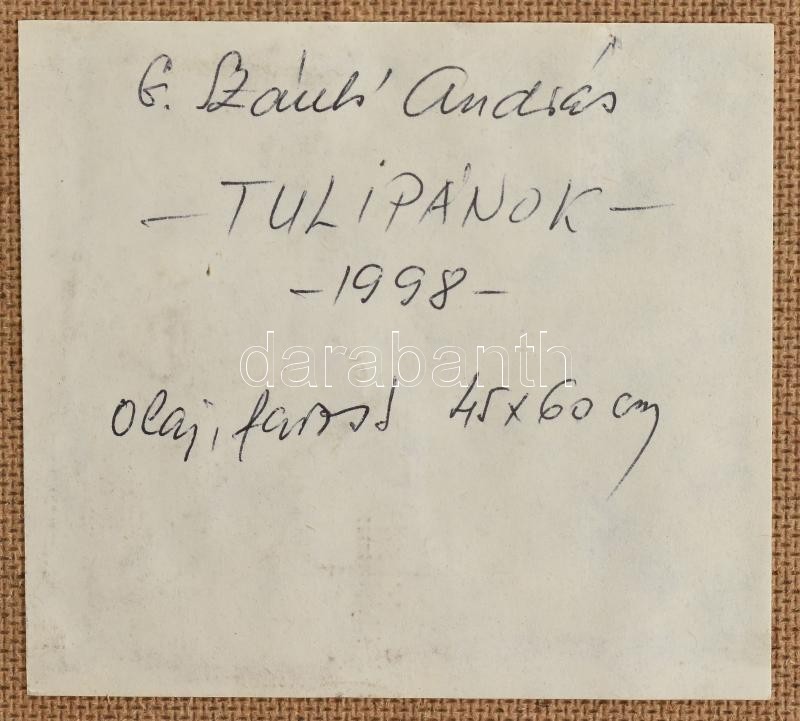 G. Szántó András
- TULIPÁNOK -
- 1998 -
darabanth
olaj, farost 45 x 60 cm